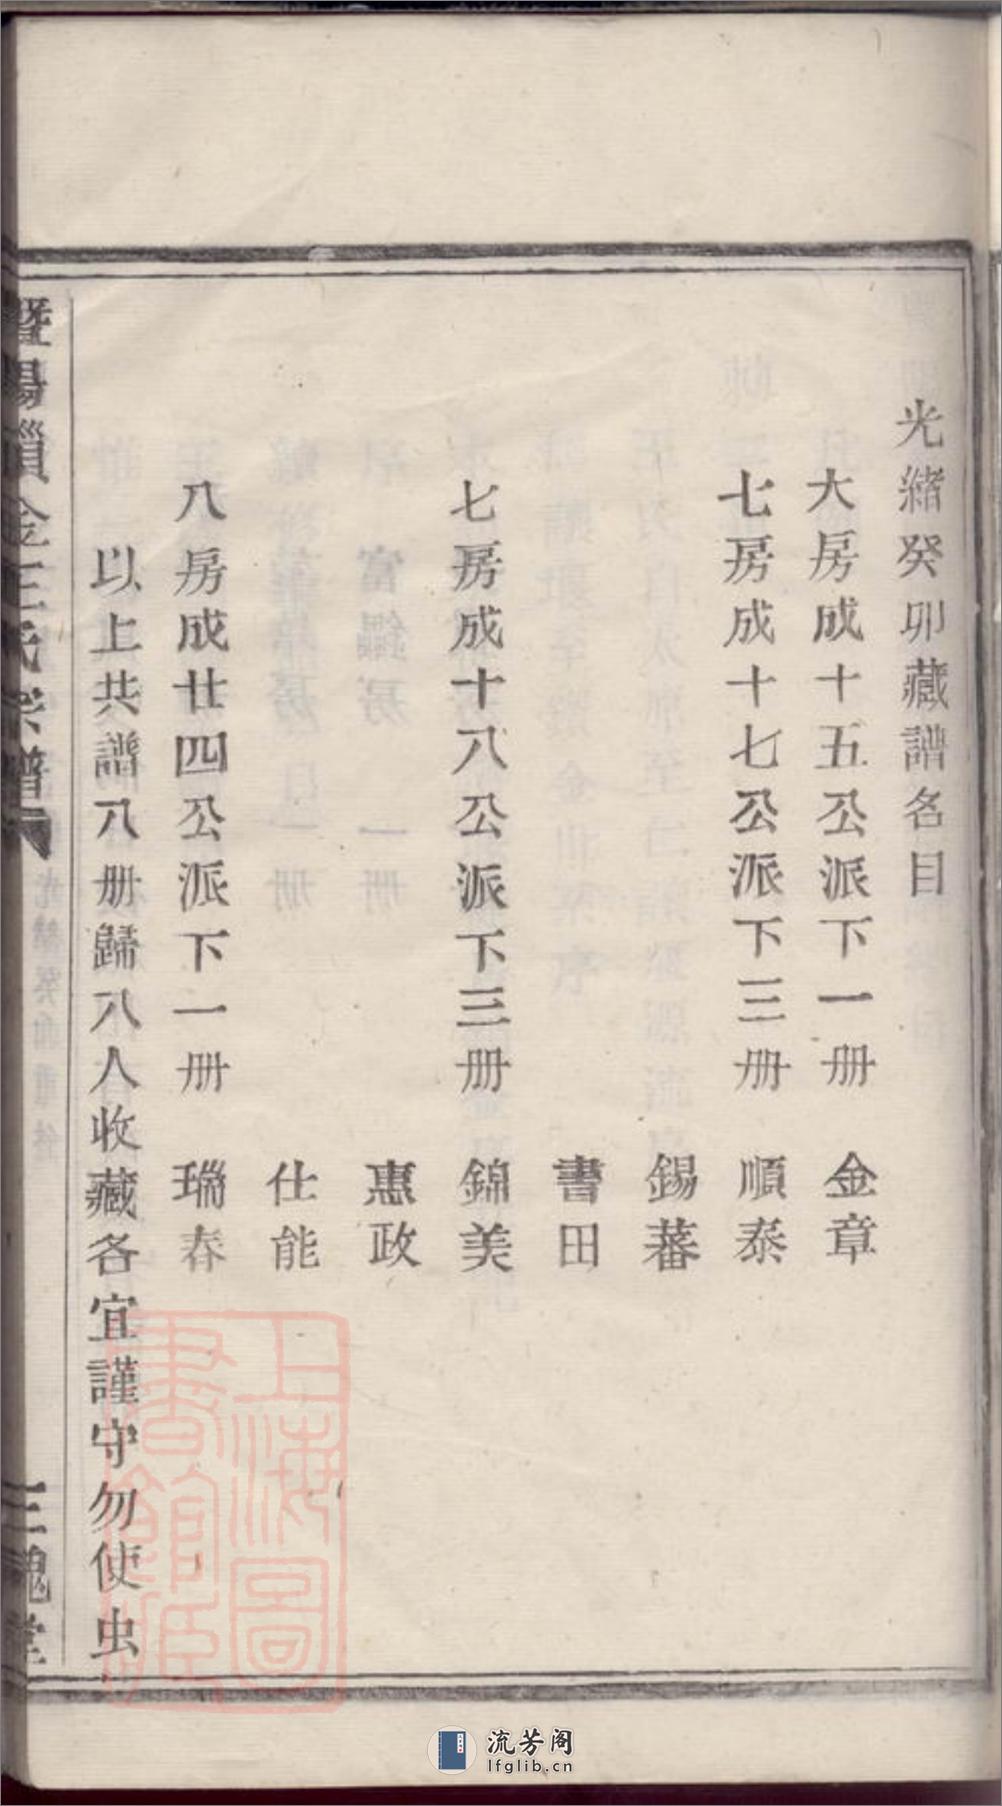 光緒癸卯藏譜名目
大房成十五公派下一册 金章
七房成十七公派下三册 順泰
錫蕃
書田
七房成十八公派下三册 錦美
惠政
仕能
八房成廿四公派下一册 瑞春
以上共譜八册歸八人收藏各宜謹守勿使虫
暨陽 金王氏宗譜
三槐堂
上海圖書館藏
流芳阁
lfglib.cn